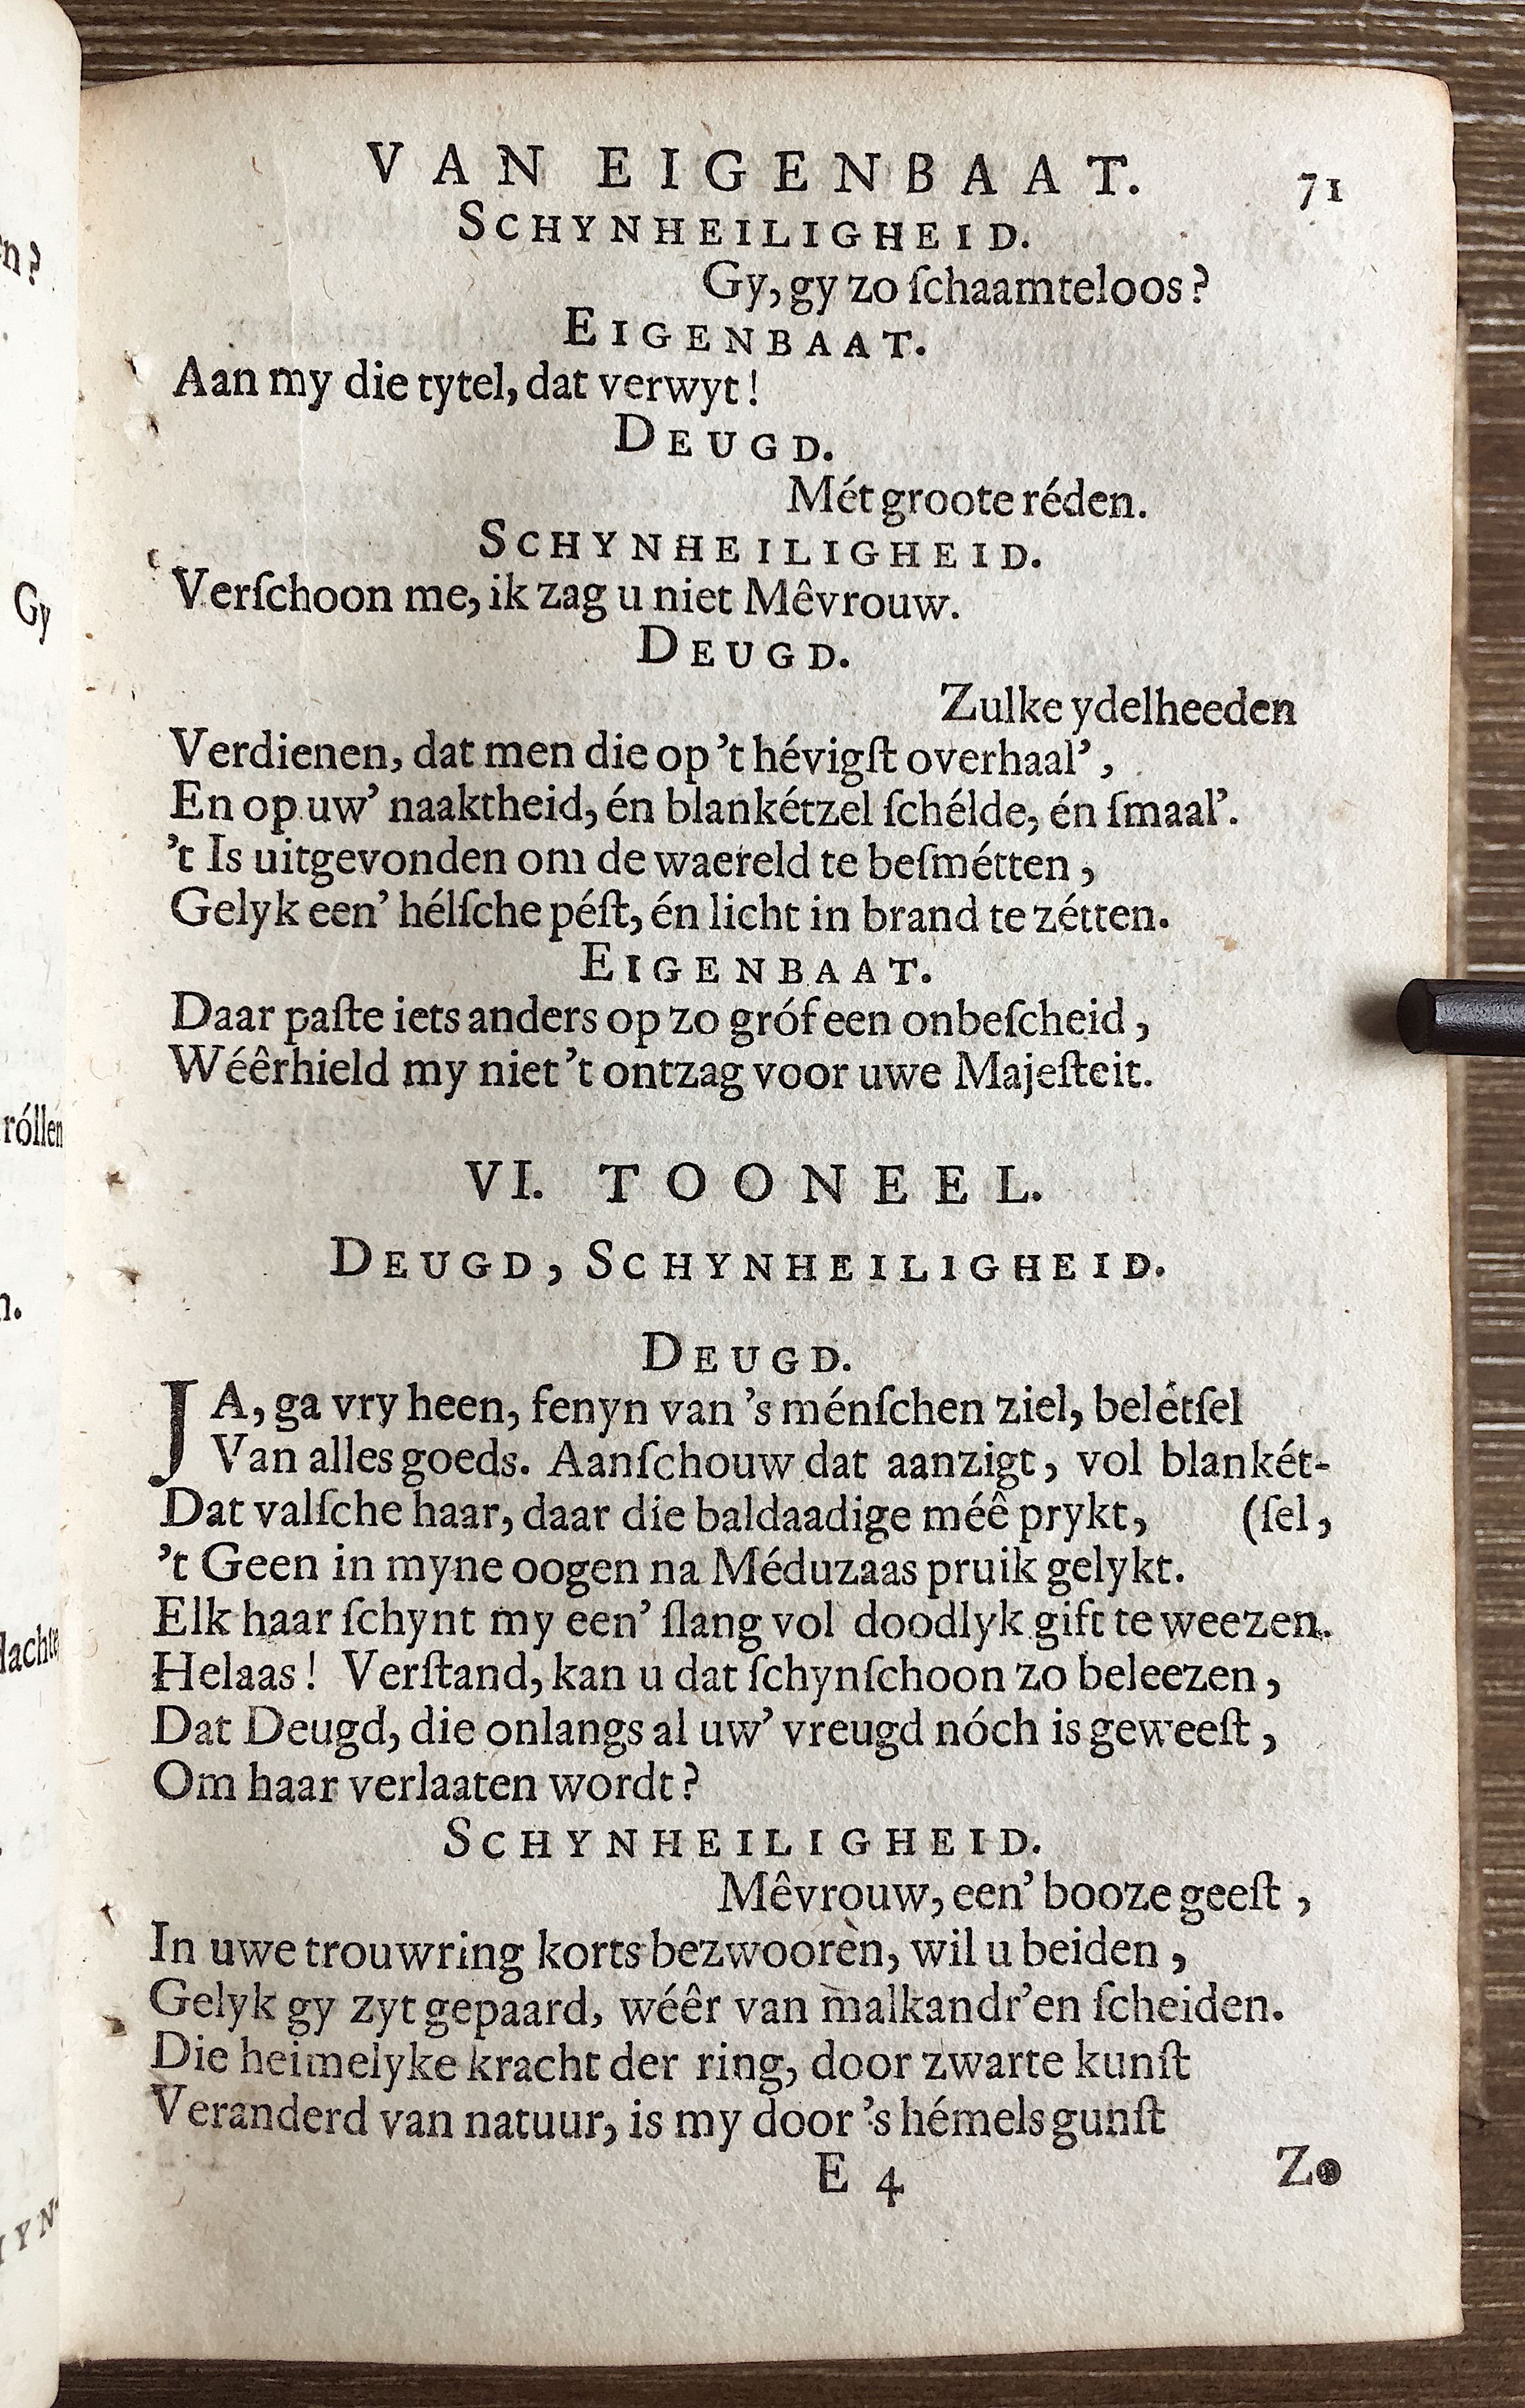 VAN EIGENBAAT. 71
SCHYNHEILIGHEID.
Gy, gy zo ſchaamteloos?
EIGENBAAT.
Aan my die tytel, dat verwyt!
DEUGD.
Mét groote réden.
SCHYNHEILIGHEID.
Verſchoon me, ik zag u niet Mêvrouw.
DEUGD.
Zulke ydelheeden
Verdienen, dat men die op 't hévigſt overhaal',
En op uw' naaktheid, én blankétzel ſchélde, én ſmaal'.
't Is uitgevonden om de waereld te beſmétten,
Gelyk een' hélſche péſt, én licht in brand te zétten.
EIGENBAAT.
Daar paſte iets anders op zo gróf een onbeſcheid,
Wéêrhield my niet 't ontzag voor uwe Majeſteit.
VI. TOONEEL.
DEUGD, SCHYNHEILIGHEID.
DEUGD.
JA, ga vry heen, fenyn van 's ménſchen ziel, belétſel
Van alles goeds. Aanſchouw dat aanzigt, vol blankét-
Dat valſche haar, daar die baldaadige méê prykt, (ſel,
't Geen in myne oogen na Méduzaas pruik gelykt.
Elk haar ſchynt my een' ſlang vol doodlyk gift te weezen.
Helaas! Verſtand, kan u dat ſchynſchoon zo beleezen,
Dat Deugd, die onlangs al uw' vreugd nóch is geweeſt,
Om haar verlaaten wordt?
SCHYNHEILIGHEID.
Mêvrouw, een' booze geeſt,
In uwe trouwring korts bezwoorèn, wil u beiden,
Gelyk gy zyt gepaard, wéêr van malkandr'en ſcheiden.
Die heimelyke kracht der ring, door zwarte kunſt
Veranderd van natuur, is my door 's hémels gunſt
E 4
n?
Gy
róllen
n.